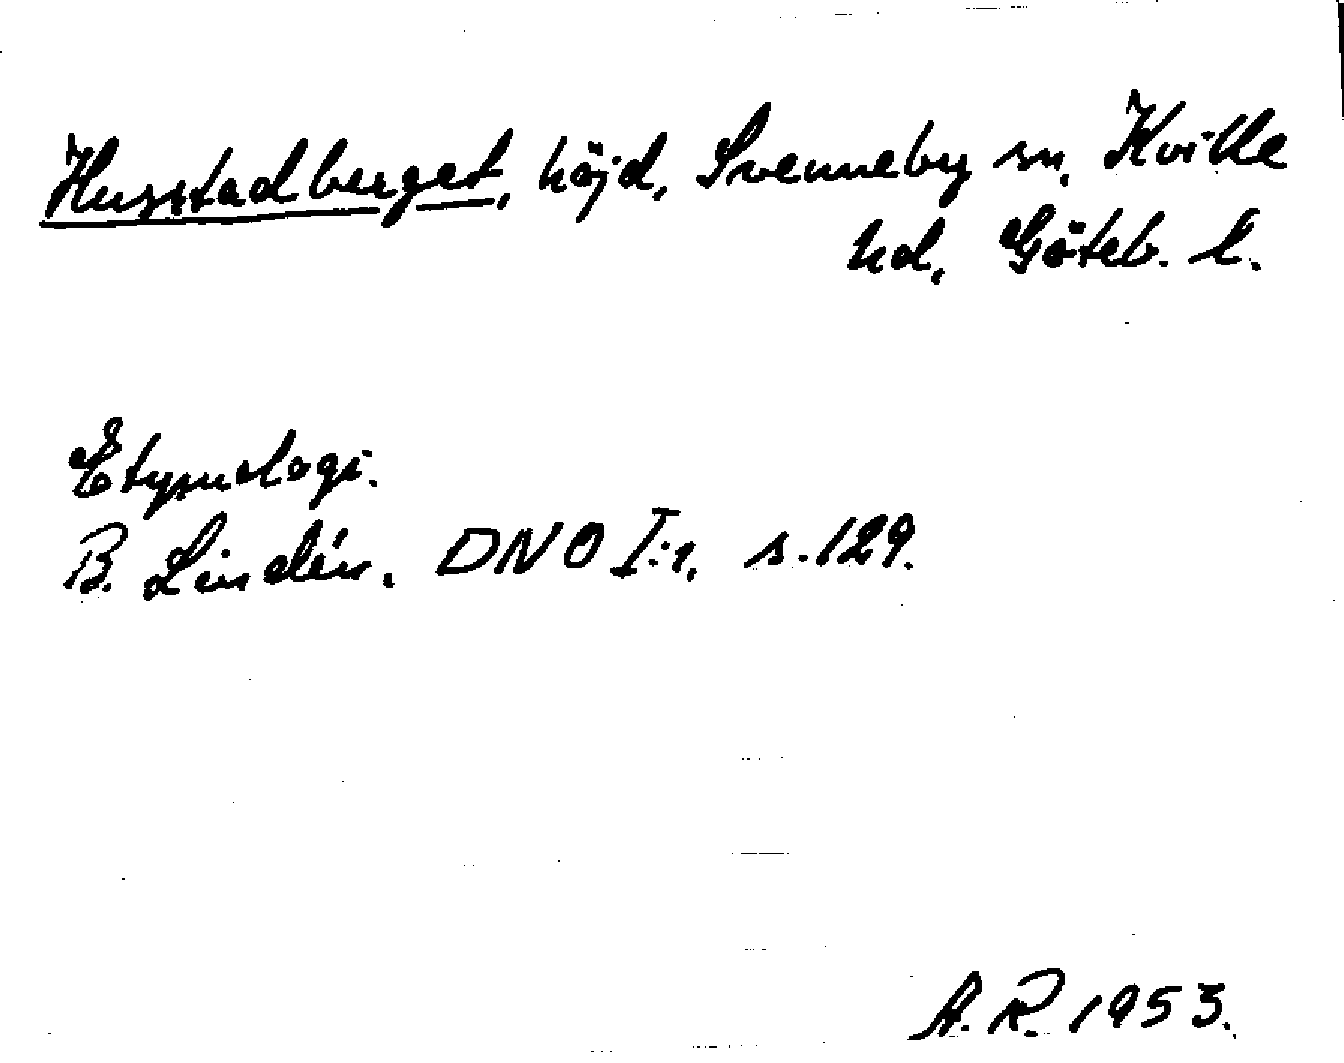 Husstadberget, höjd, Svenneby sn, Kville
hd, Göteb. l.
Etymologi.
B. Lindén. DNO I:1, s. 129.
A. R. 1953.